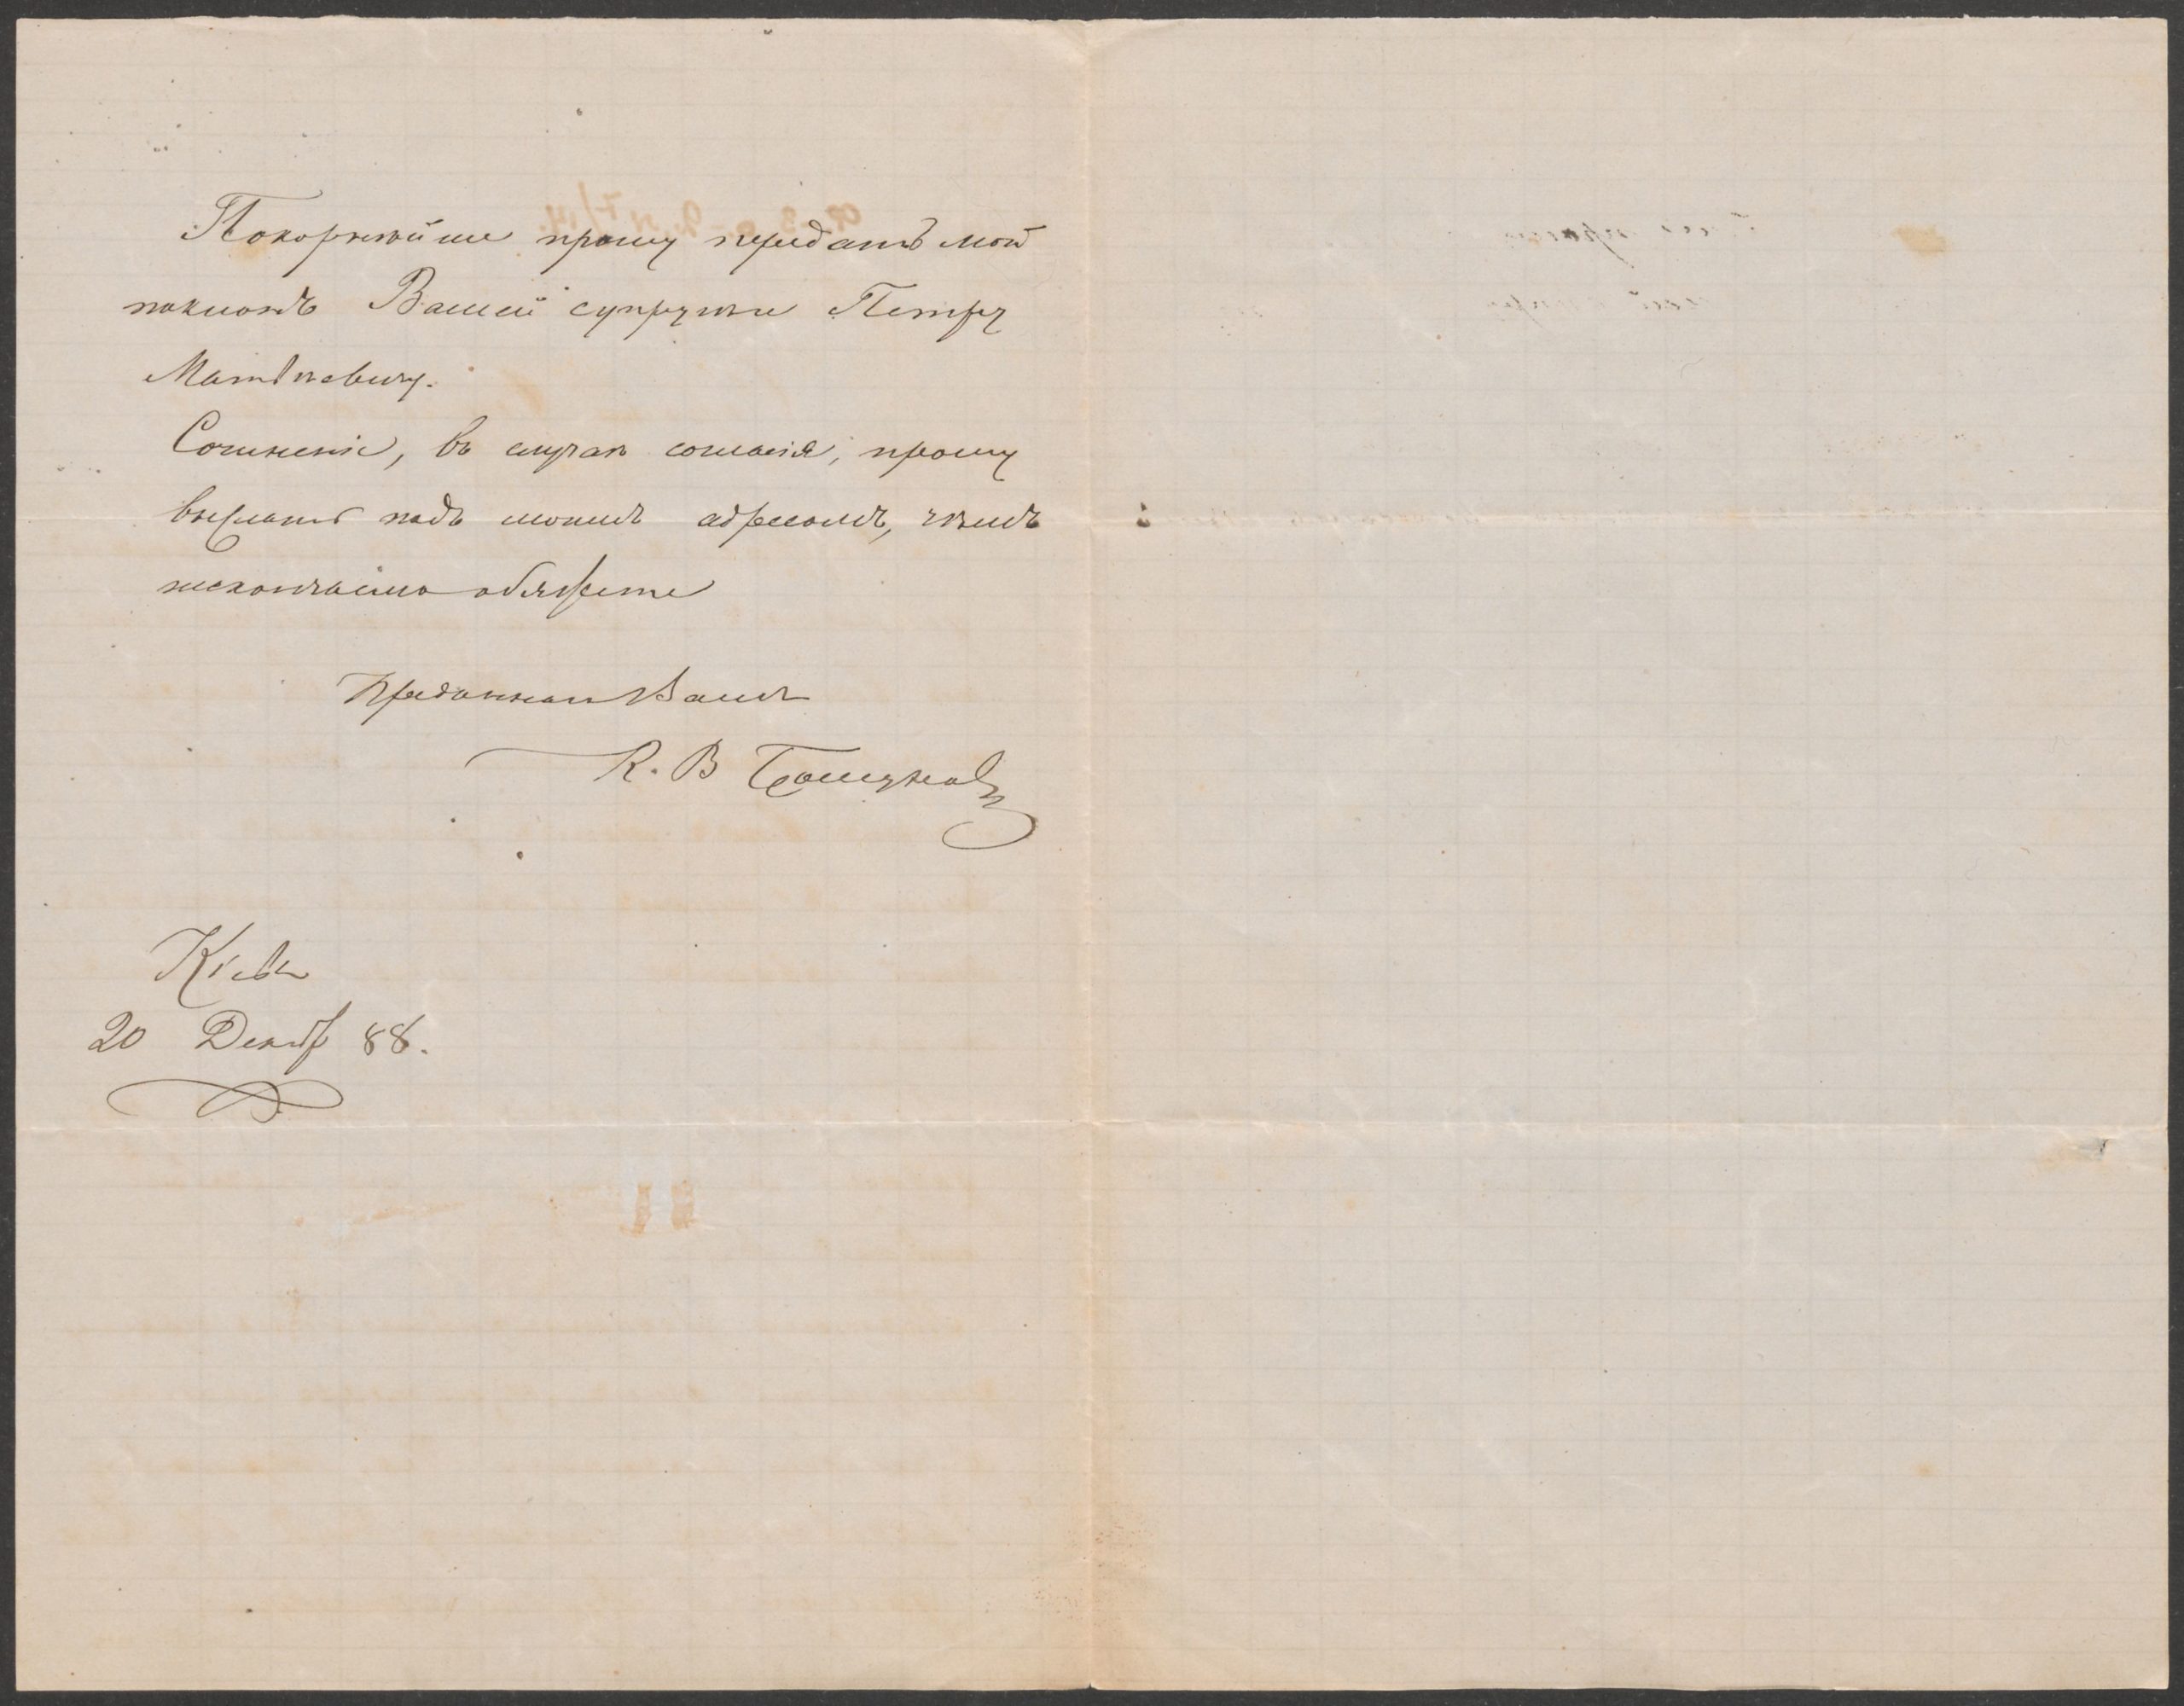 Покорнѣйше прошу передать мой
поклонъ Вашей супругѣ и Петру
Матвѣевичу.
Сочиненіе, въ случаѣ согласія, прошу
выслать подъ моимъ адресомъ, чѣмъ
нескончаемо обяжете
Преданная Вамъ
К. В
Кіевъ
20 Декабр 88.